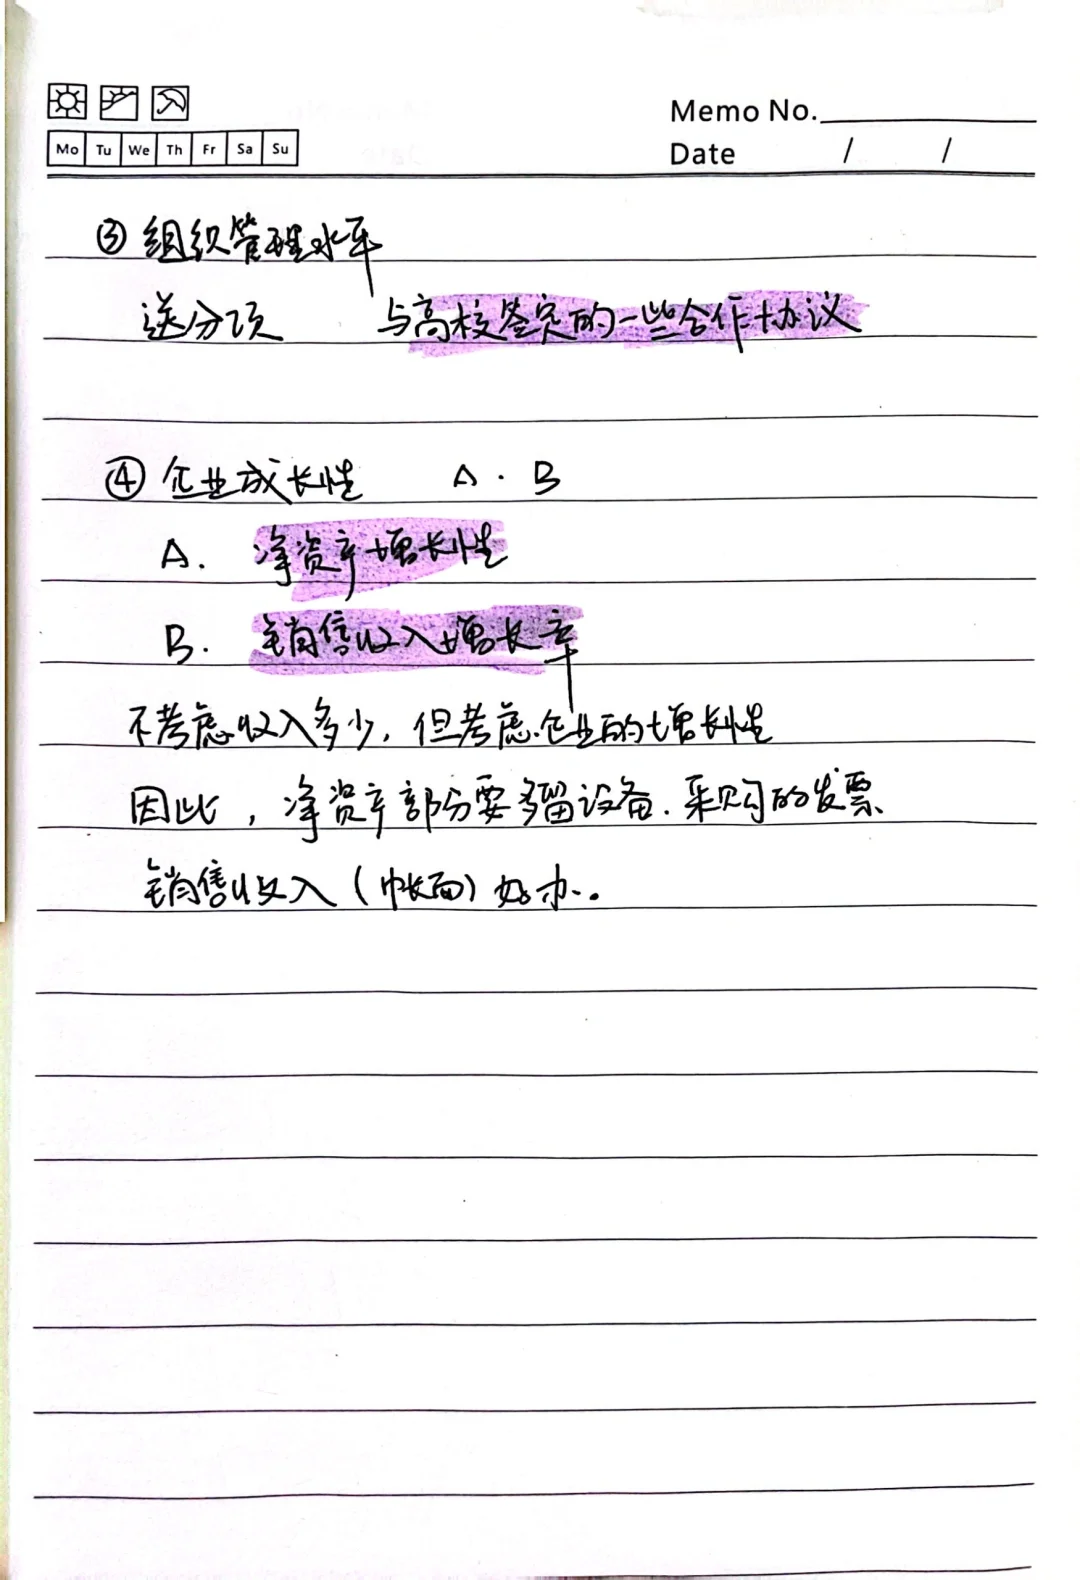 Memo No.
Mo Tu We Th Fr Sa Su
Date / /
③ 组织管理水平
送分项 与高校签定的一些合作协议
④ 企业成长性 A · B
A. 净资产增长性
B. 销售收入增长率
不考虑收入多少, 但考虑企业的增长性
因此, 净资产部分要多留设备. 采购的发票
销售收入 (帐面) 好办.